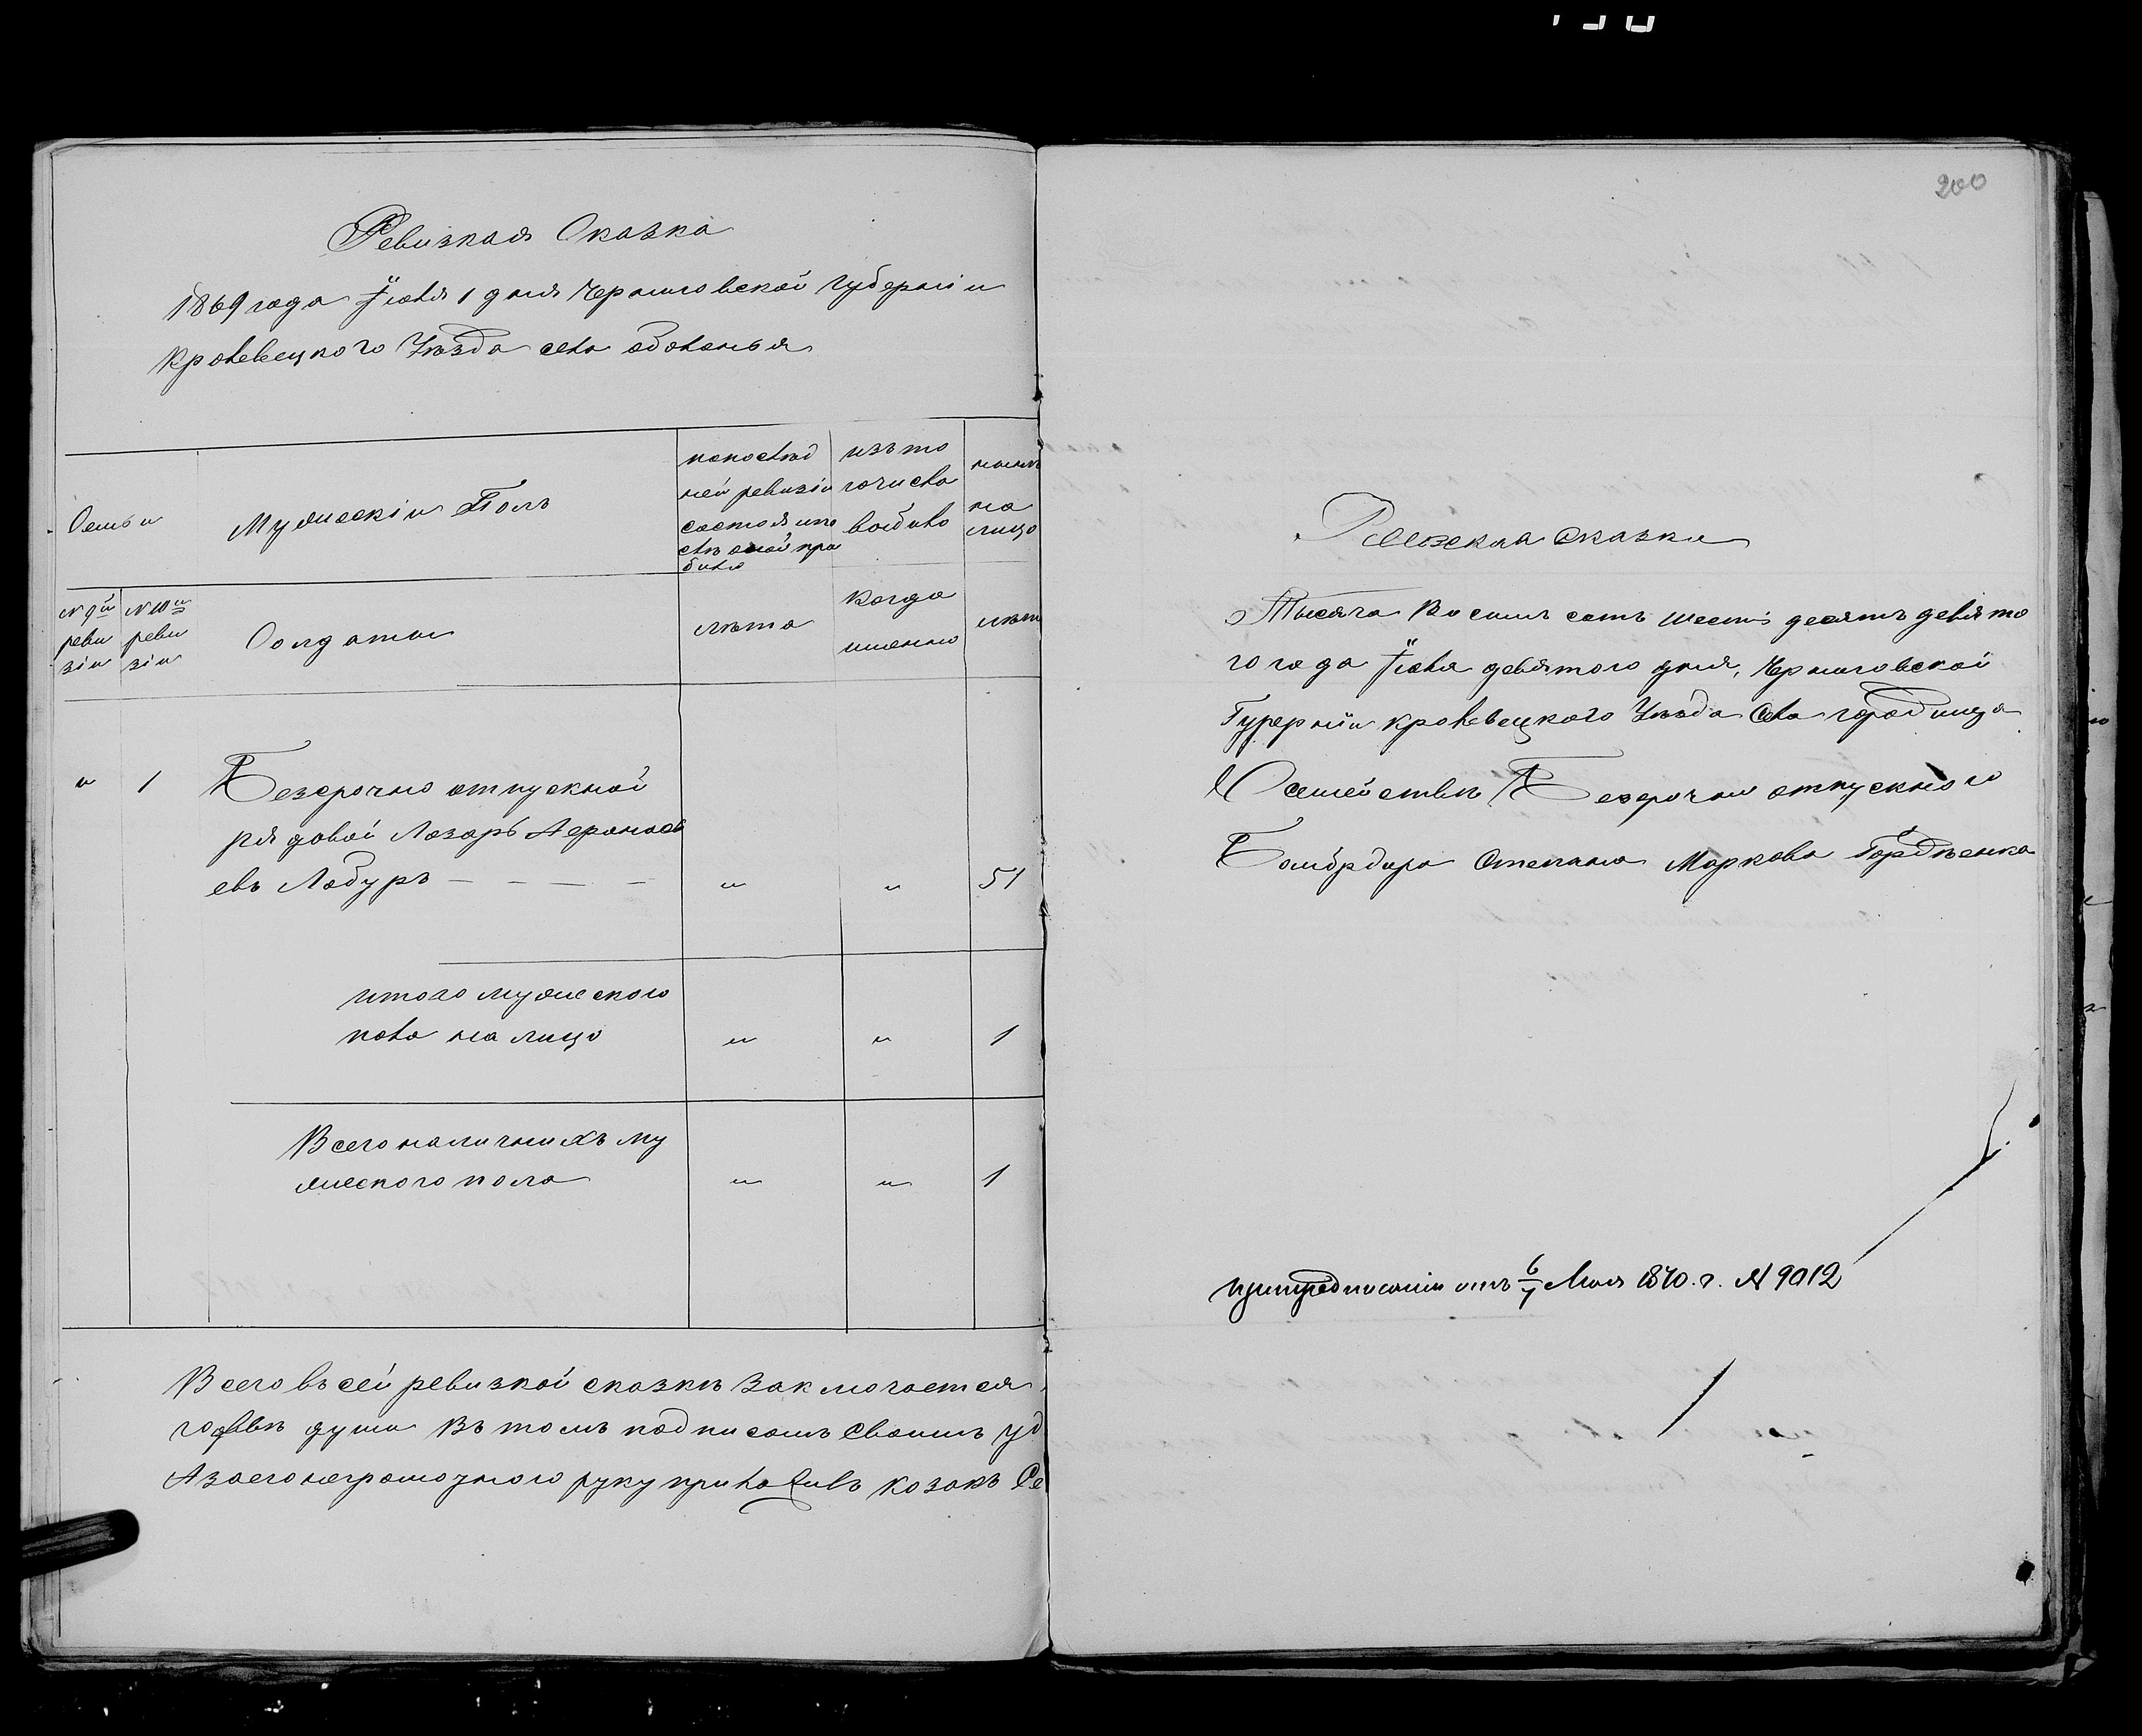 Ревизкая Сказка
1869 года Июля 1 дня Черниговской Губернии
Кролевецкого Уезда села оболонья
Семьи
Мужескии Полъ
попослѣд
ней ревизіи
состояло
слѣ оной при
било
изъ то
го числа
вибило
нынѣ
на
лицо
N 9й
реви
зіи
N 10и
реви
зіи
Солдаты
лѣта
когда
именно
лѣт
" 1 Безсрочно отпускной
рядовой Лазарь
евъ Лобуръ — — — — " " 51
итого мужеского
пола на лицо " " 1
Всего наличнихъ му
жеского пола " " 1
Всего въ сей ревизкой сказкѣ Заключается
души Въ томъ подписомъ Своимъ уд
А заего неграмотного руку приложилъ козакъ Се
200
Ревизская сказка
Тысяча Восемъ сотъ шесть десятъ девято
го года Июля девятого дня, Черниговской
Гурернии Кролевецкого Уѣзда Села городища
О семействѣ Безсрочно отпускного
Бомбрдира Степана Маркова Гордѣенка
при предписаніи отъ 6/7 Мая 1870. г. № 9012